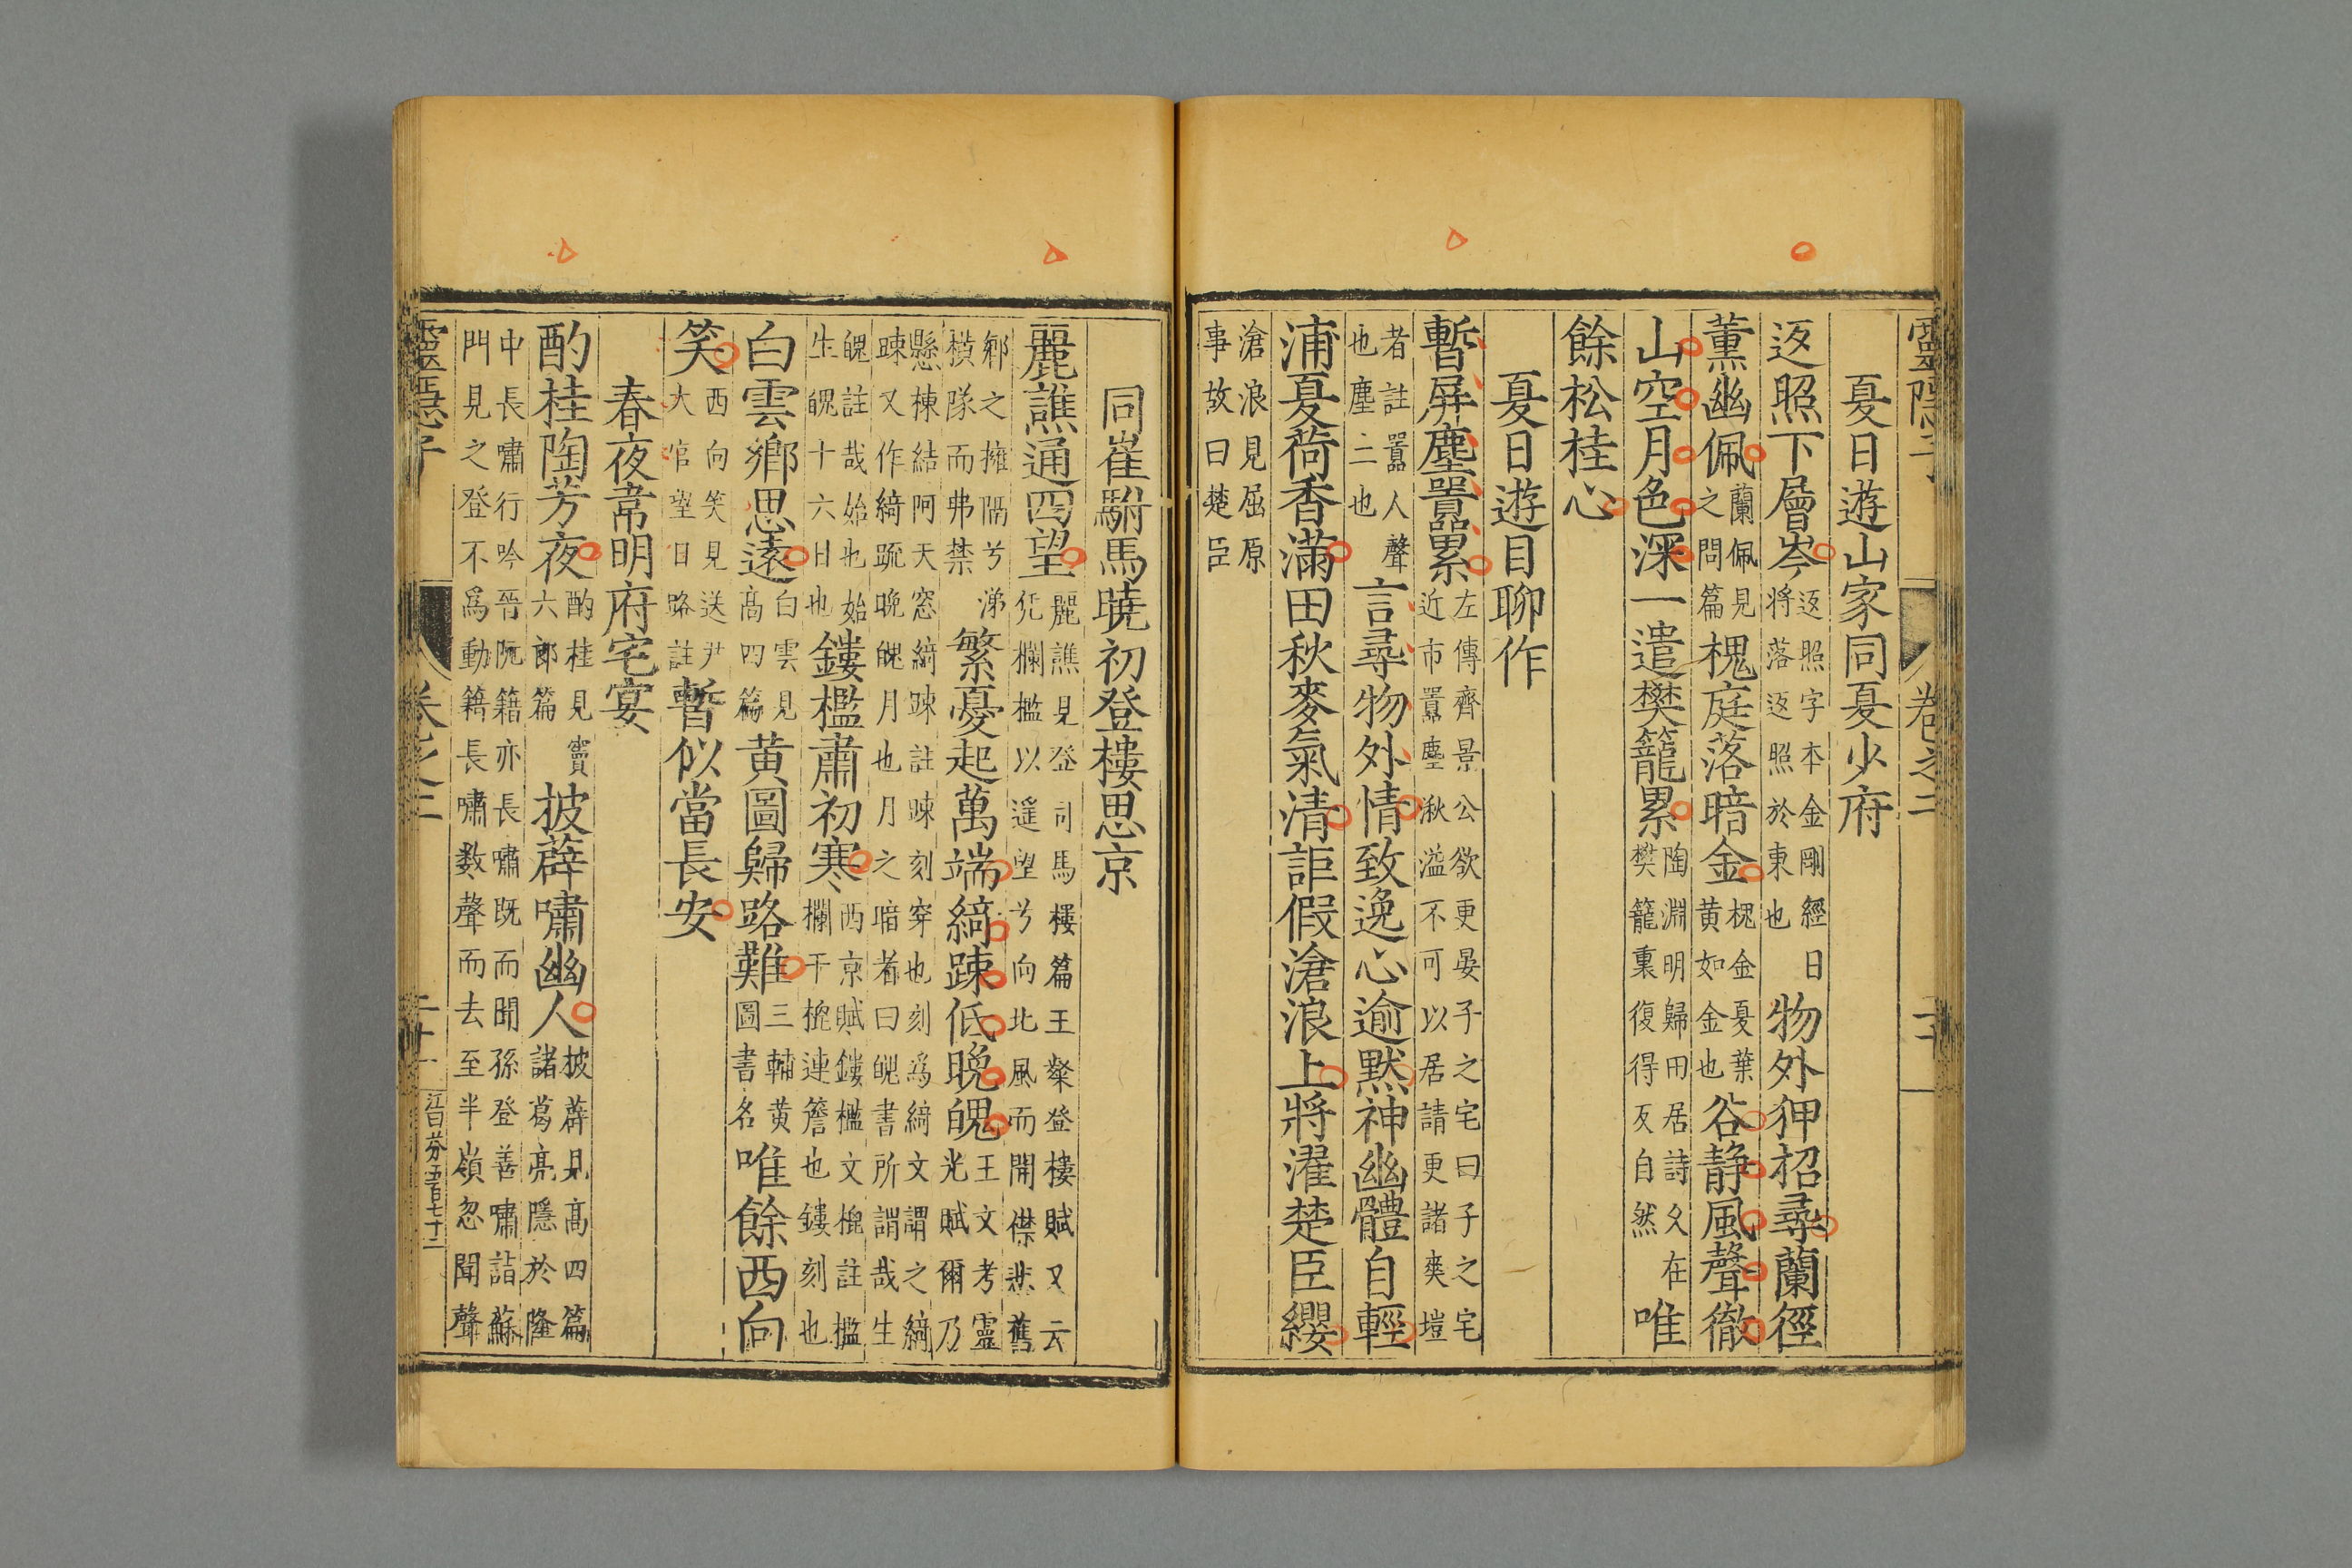 靈隱子
卷之二
二十
夏日遊山家同夏少府
返照下層岑返照字本金剛經日將落返照於東也物外狎招尋蘭徑
薰幽佩蘭佩見之問篇槐庭落暗金槐金夏葉黄如金也谷静風聲徹
山空月色深一遣樊籠累陶淵明歸田居詩久在樊籠裏復得反自然唯
餘松桂心
夏日遊目聊作
暫屏塵囂累左傳齊景公欲更晏子之宅曰子之宅近市囂塵湫溢不可以居請更諸爽塏
者註囂人聲也塵土也言尋物外情致逸心逾默神幽體自輕
浦夏荷香滿田秋麥氣清詎假滄浪上將濯楚臣纓
滄浪見屈原事故曰楚臣
同崔駙馬曉初登樓思京
麗譙通四望麗譙見登司馬樓篇王粲登樓賦又云凭欄檻以遥望兮向北風而開襟悲舊
鄉之擁隔兮涕橫隊而弗禁繁憂起萬端綺疎低晚魄王文考靈光賦爾乃
懸棟結阿天窓綺疎註疎刻穿也刻爲綺文謂之綺疎又作綺疏晚魄月也月之暗者曰魄書所謂哉生
魄註哉始也始生魄十六日也鏤檻肅初寒西京賦鏤檻文㮰註檻欄干㮰連簷也鏤刻也
白雲鄉思遠白雲見高四篇黄圖歸路難三輔黄圖書名唯餘西向
笑西向笑見送尹大官望日略註暫似當長安
春夜韋明府宅宴
酌桂陶芳夜酌桂見竇六郎篇披薜嘯幽人披薜見高四篇諸葛亮隱於隆
中長嘯行吟晉阮籍亦長嘯既而聞孫登善嘯詣蘇門見之登不爲動籍長嘯数聲而去至半嶺忽聞聲
靈隱子
卷之二
二十一
江日芬五百七十二